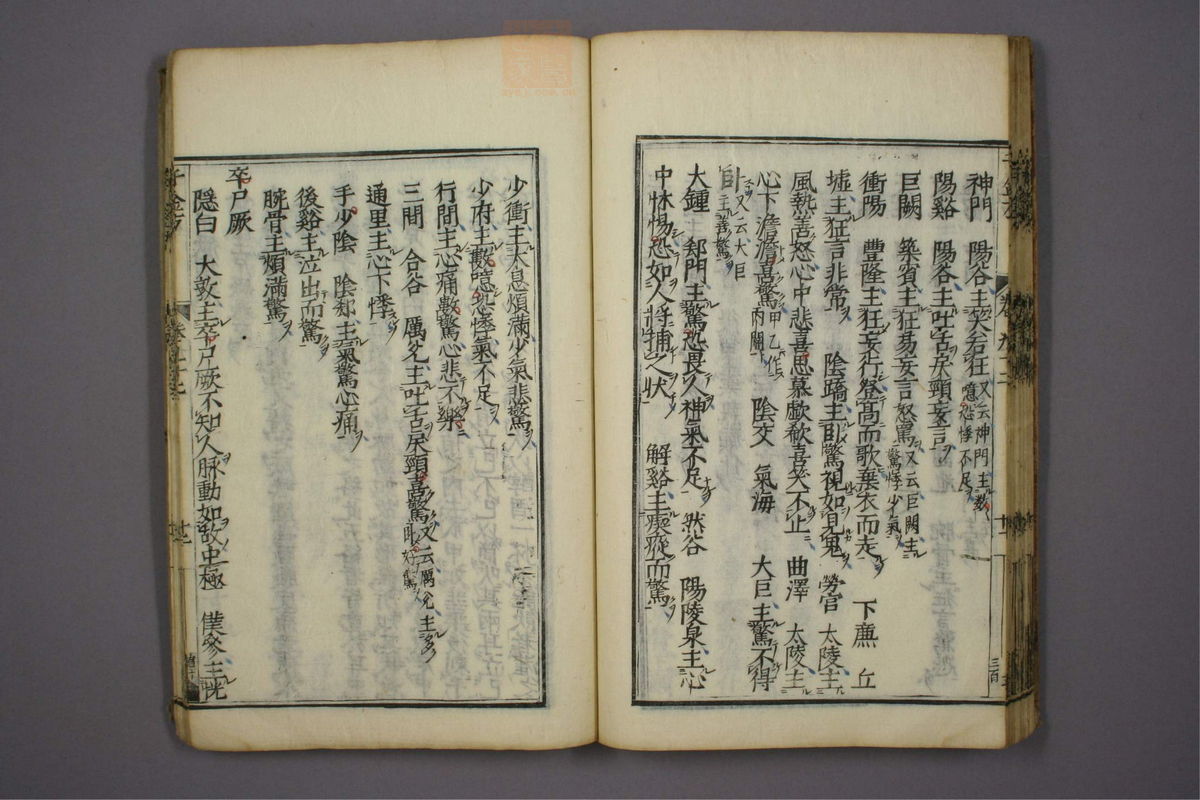 神門　陽谷主笑若狂又云神門主數噫恐悸不足
陽谿　陽谷主吐舌戾頸妄言
巨闕　築賓主狂易妄言怒罵又云巨闕主驚悸少氣
衝陽　豐隆主狂妄行登高而歌棄衣而走　下廉　丘
墟主狂言非常　陰蹻主臥驚視如見鬼　勞宮　太陵主
風熱善怒心中悲喜思慕歔欷喜笑不止　曲澤　太陵主
心下澹澹喜驚甲乙作內關　陰交　氣海　大巨主驚不得
臥又云大巨主善驚
大鍾　郄門主驚恐畏人神氣不足　然谷　陽陵泉主心
中怵惕恐如人將捕之狀　解谿主瘈瘲而驚
少衝主太息煩滿少氣悲驚
少府主數噫恐悸氣不足
行間主心痛數驚心悲不樂
三間　合谷　厲兌主吐舌戾頸喜驚又云厲兌主多臥好驚
通里主心下悸
手少陰　陰郄主氣驚心痛
後谿主泣出而驚
腕骨主煩滿驚
卒尸厥
隱白　大敦主卒尸厥不知人脉動如故中極　僕參主恍